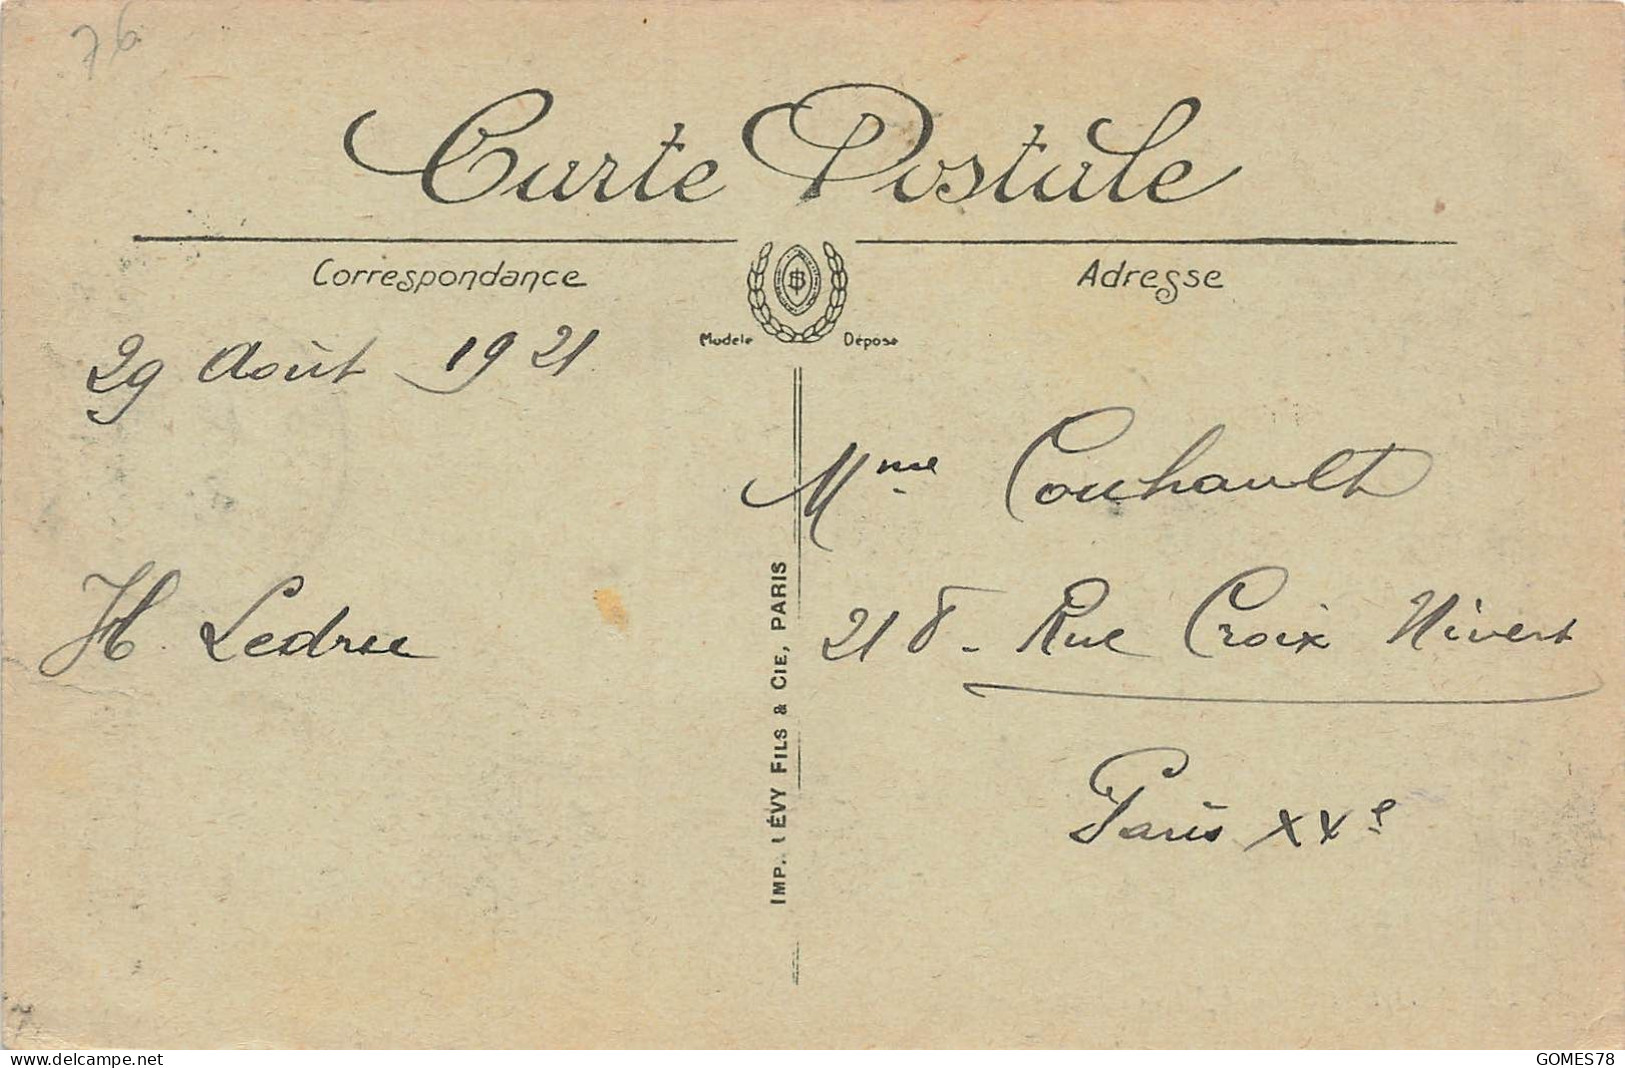 76
Carte Postale
Correspondance
Adresse
Modèle Déposé
29 Août 1921
Mme Couhault
H. Ledru
218. Rue Croix Nivert
Paris XXe
IMP. LÉVY FILS & CIE, PARIS
www.delcampe.net
GOMES78